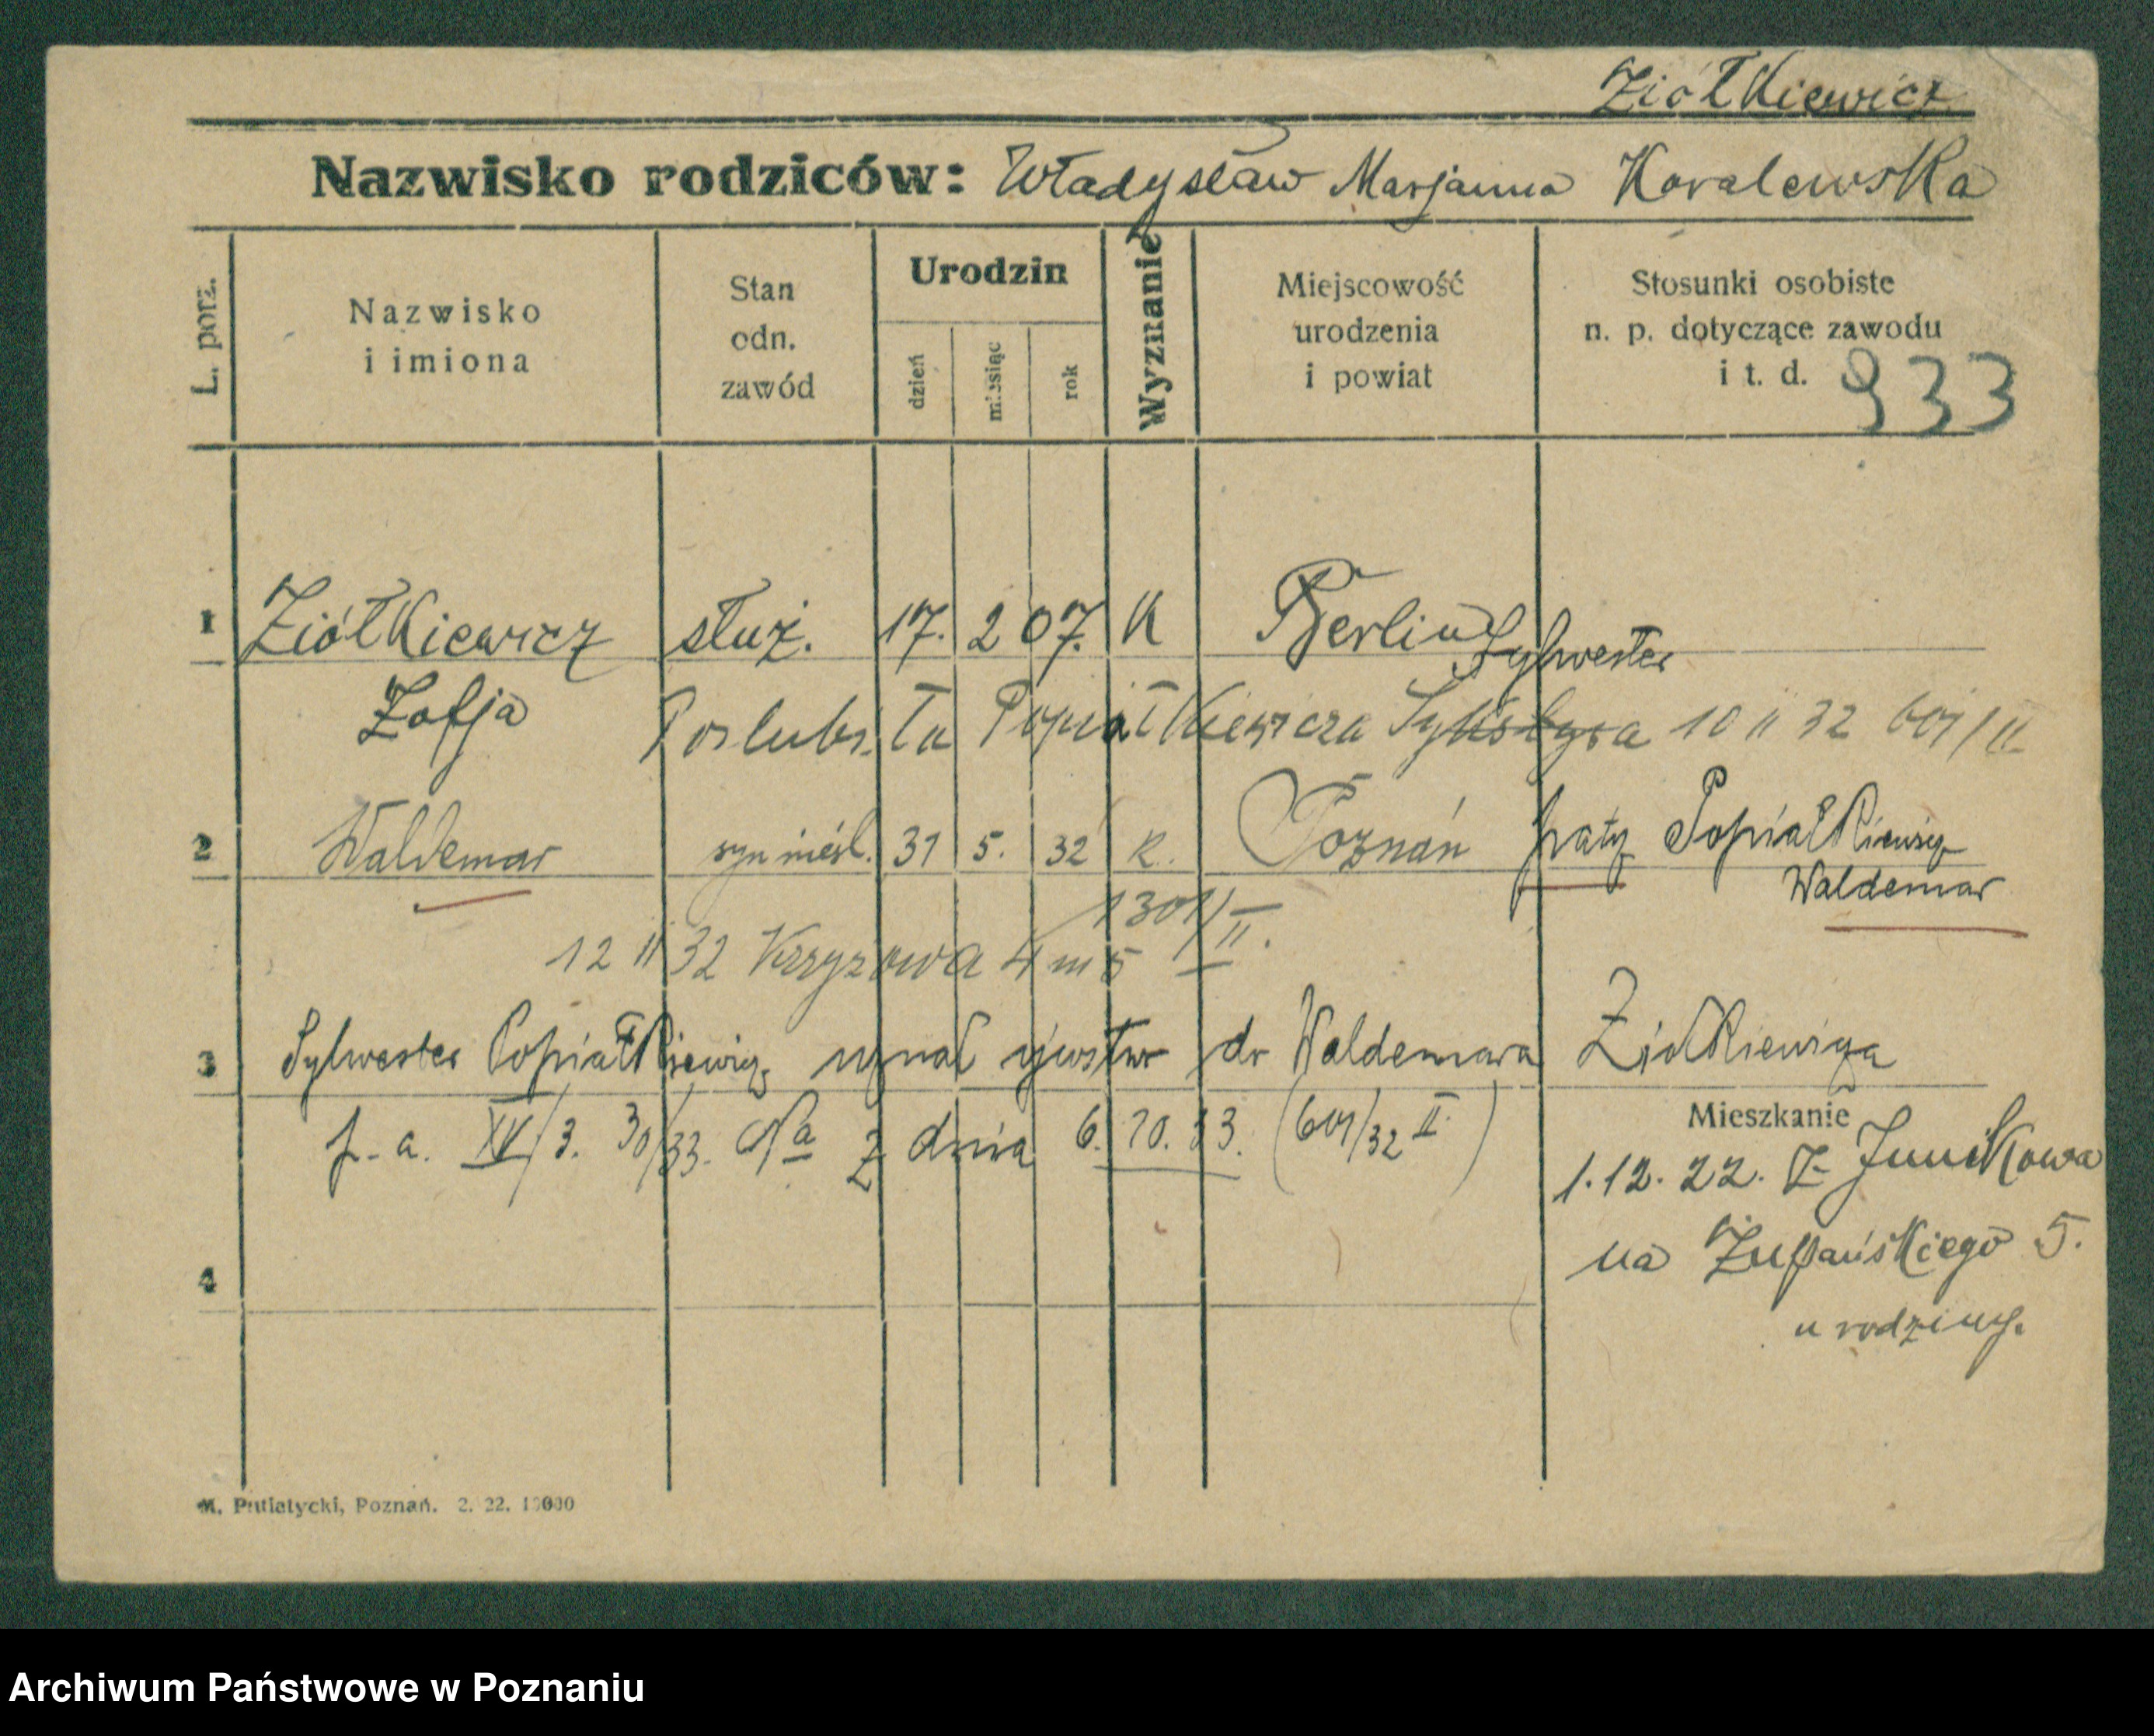 Ziółkiewicz
Nazwisko rodziców: Władysław Marjanna Kovalewska
L. porz.
Nazwisko
i imiona
Stan
odn.
zawód
Urodzin
dzień
miesiąc
rok
Wyznanie
Miejscowość
urodzenia
i powiat
Stosunki osobiste
n. p. dotyczące zawodu
i t. d.
933
1 Ziółkiewicz służ. 17. 2 07. K Berlin
Sylwester
Zofja Poślubiła Popiołkiewicza 10 11 32 601/II
2 Waldemar syn nieśl. 31 5. 32 k. Poznań patrz Popiałkiewicz
Waldemar
1301/II.
12 11 32 Krzyzowa 4 m 5
3 Sylwester Popiałkiewicz uznał ojcostwo do Waldemara Ziolkiewicza
p. a. XV/3. 30/33. Na z dnia 6. 10. 33. (601/32 II.)
Mieszkanie
1.12.22. Z Junikowa
na Żupańskiego 5.
u rodziny.
4
M. Putiatycki, Poznań. 2. 22. 10000
Archiwum Państwowe w Poznaniu